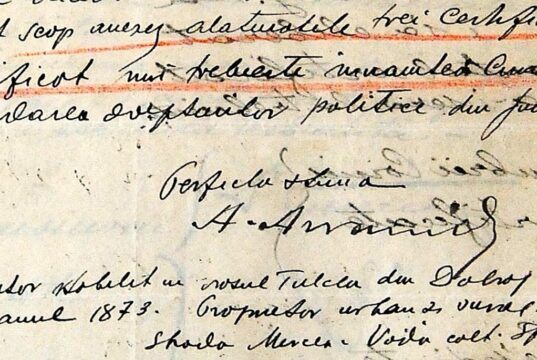 scop anexez alaturatele trei certifi
ificat imi trebueste inaintea Com
darea drepturilor politice din
Perfecta stima
A. Avramid
itor stabilit in orasul Tulcea din Dobrog
anul 1873. Proprietor urban si rural
Strada Mircea-Voda colt.